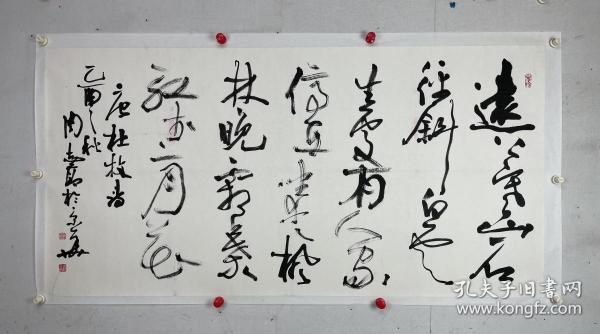 遠上寒山石
径斜白雲
生處有人家
停車坐愛楓
林晚霜葉
紅於二月花
唐杜牧诗
乙酉之秋
周志高於上海
孔夫子旧书网
www.kongfz.com